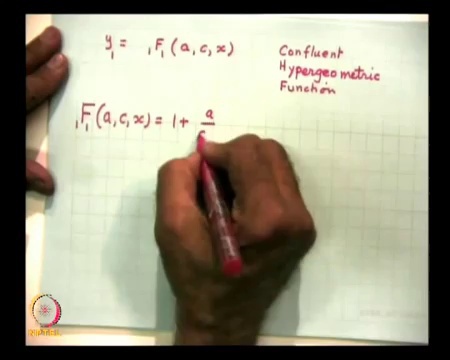 y₁ = ₁F₁ (a, c, x)
Confluent
Hypergeometric
Function
₁F₁ (a, c, x) = 1 + a
NPTEL